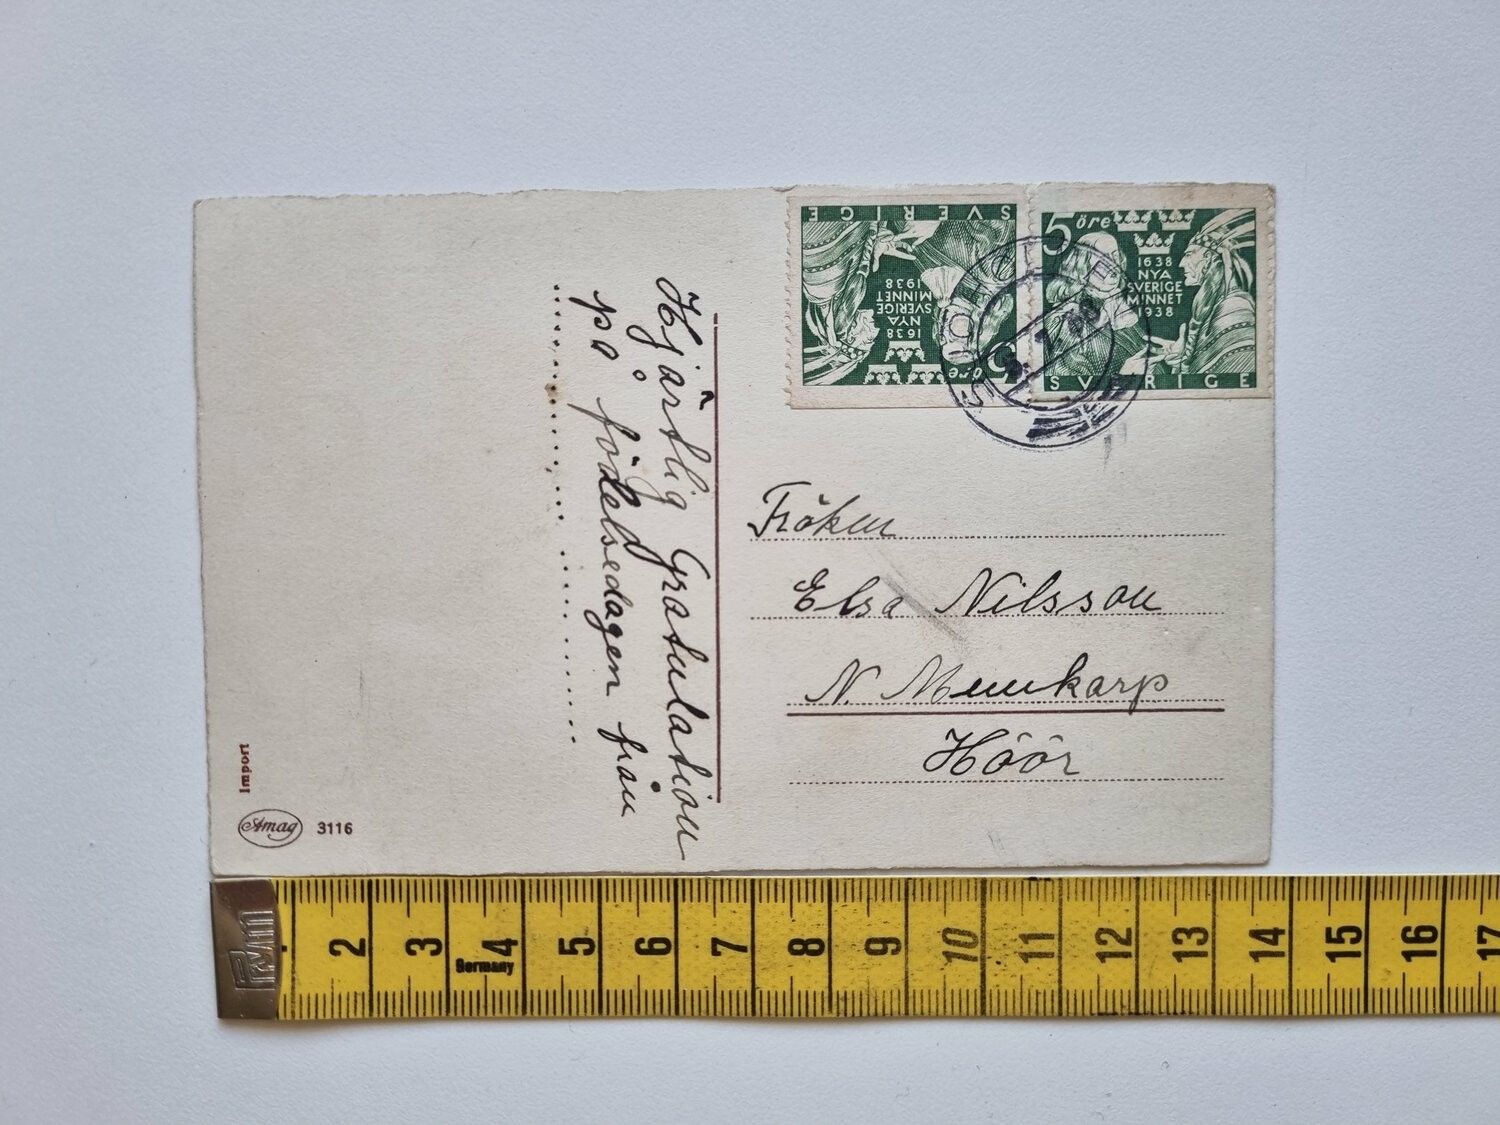 SVERIGE
1638
NYA
SVERIGE
MINNET
1938
5 öre
5 öre
1638
NYA
SVERIGE
MINNET
1938
SVERIGE
STOCKHOLM
Hjärtlig Gratulation
på födelsedagen från
Fröken
Elsa Nilsson
N. Munkarp
Höör
Import
Amag 3116
2 3 4 5 6 7 8 9 10 11 12 13 14 15 16 17
Germany